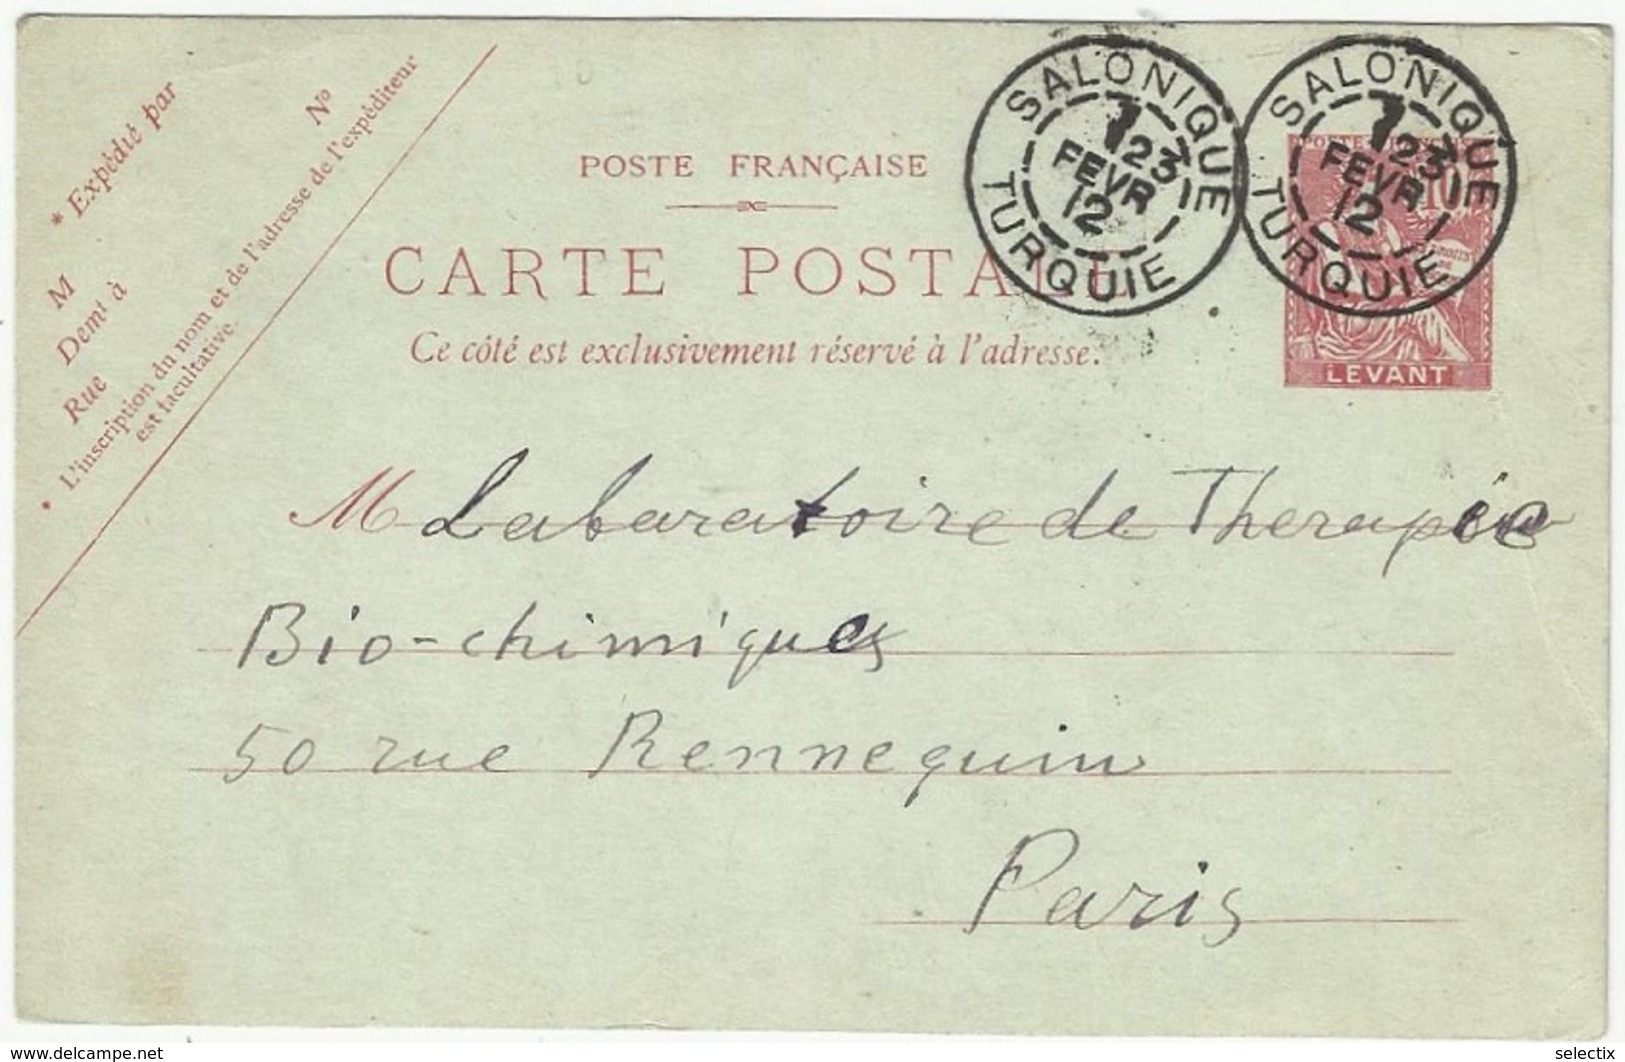 * Expédié par
M
Dem^t à
Rue
N°
* L'inscription du nom et de l'adresse de l'expéditeur
est facultative.
POSTE FRANÇAISE
CARTE POSTALE
Ce côté est exclusivement réservé à l'adresse.
SALONIQUE
7
23
FEVR
12
TURQUIE
SALONIQUE
7
23
FEVR
12
TURQUIE
10
LEVANT
M Labaratoire de Therapie
Bio-chimiques
50 rue Rennequin
Paris
delcampe.net
selectix